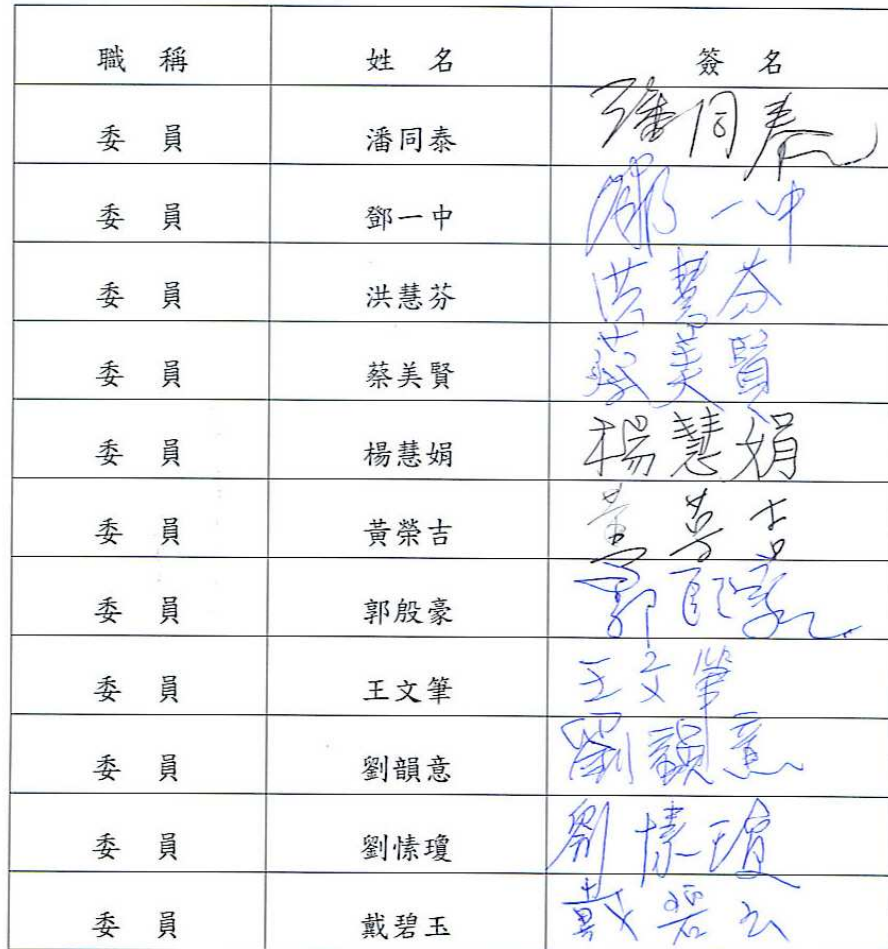 職 稱 姓 名 簽 名
委 員 潘同泰 潘同泰
委 員 鄧一中 鄧一中
委 員 洪慧芬 洪慧芬
委 員 蔡美賢 蔡美賢
委 員 楊慧娟 楊慧娟
委 員 黃榮吉 黃榮吉
委 員 郭殷豪 郭殷豪
委 員 王文筆 王文筆
委 員 劉韻意 劉韻意
委 員 劉愫瓊 劉愫瓊
委 員 戴碧玉 戴碧玉